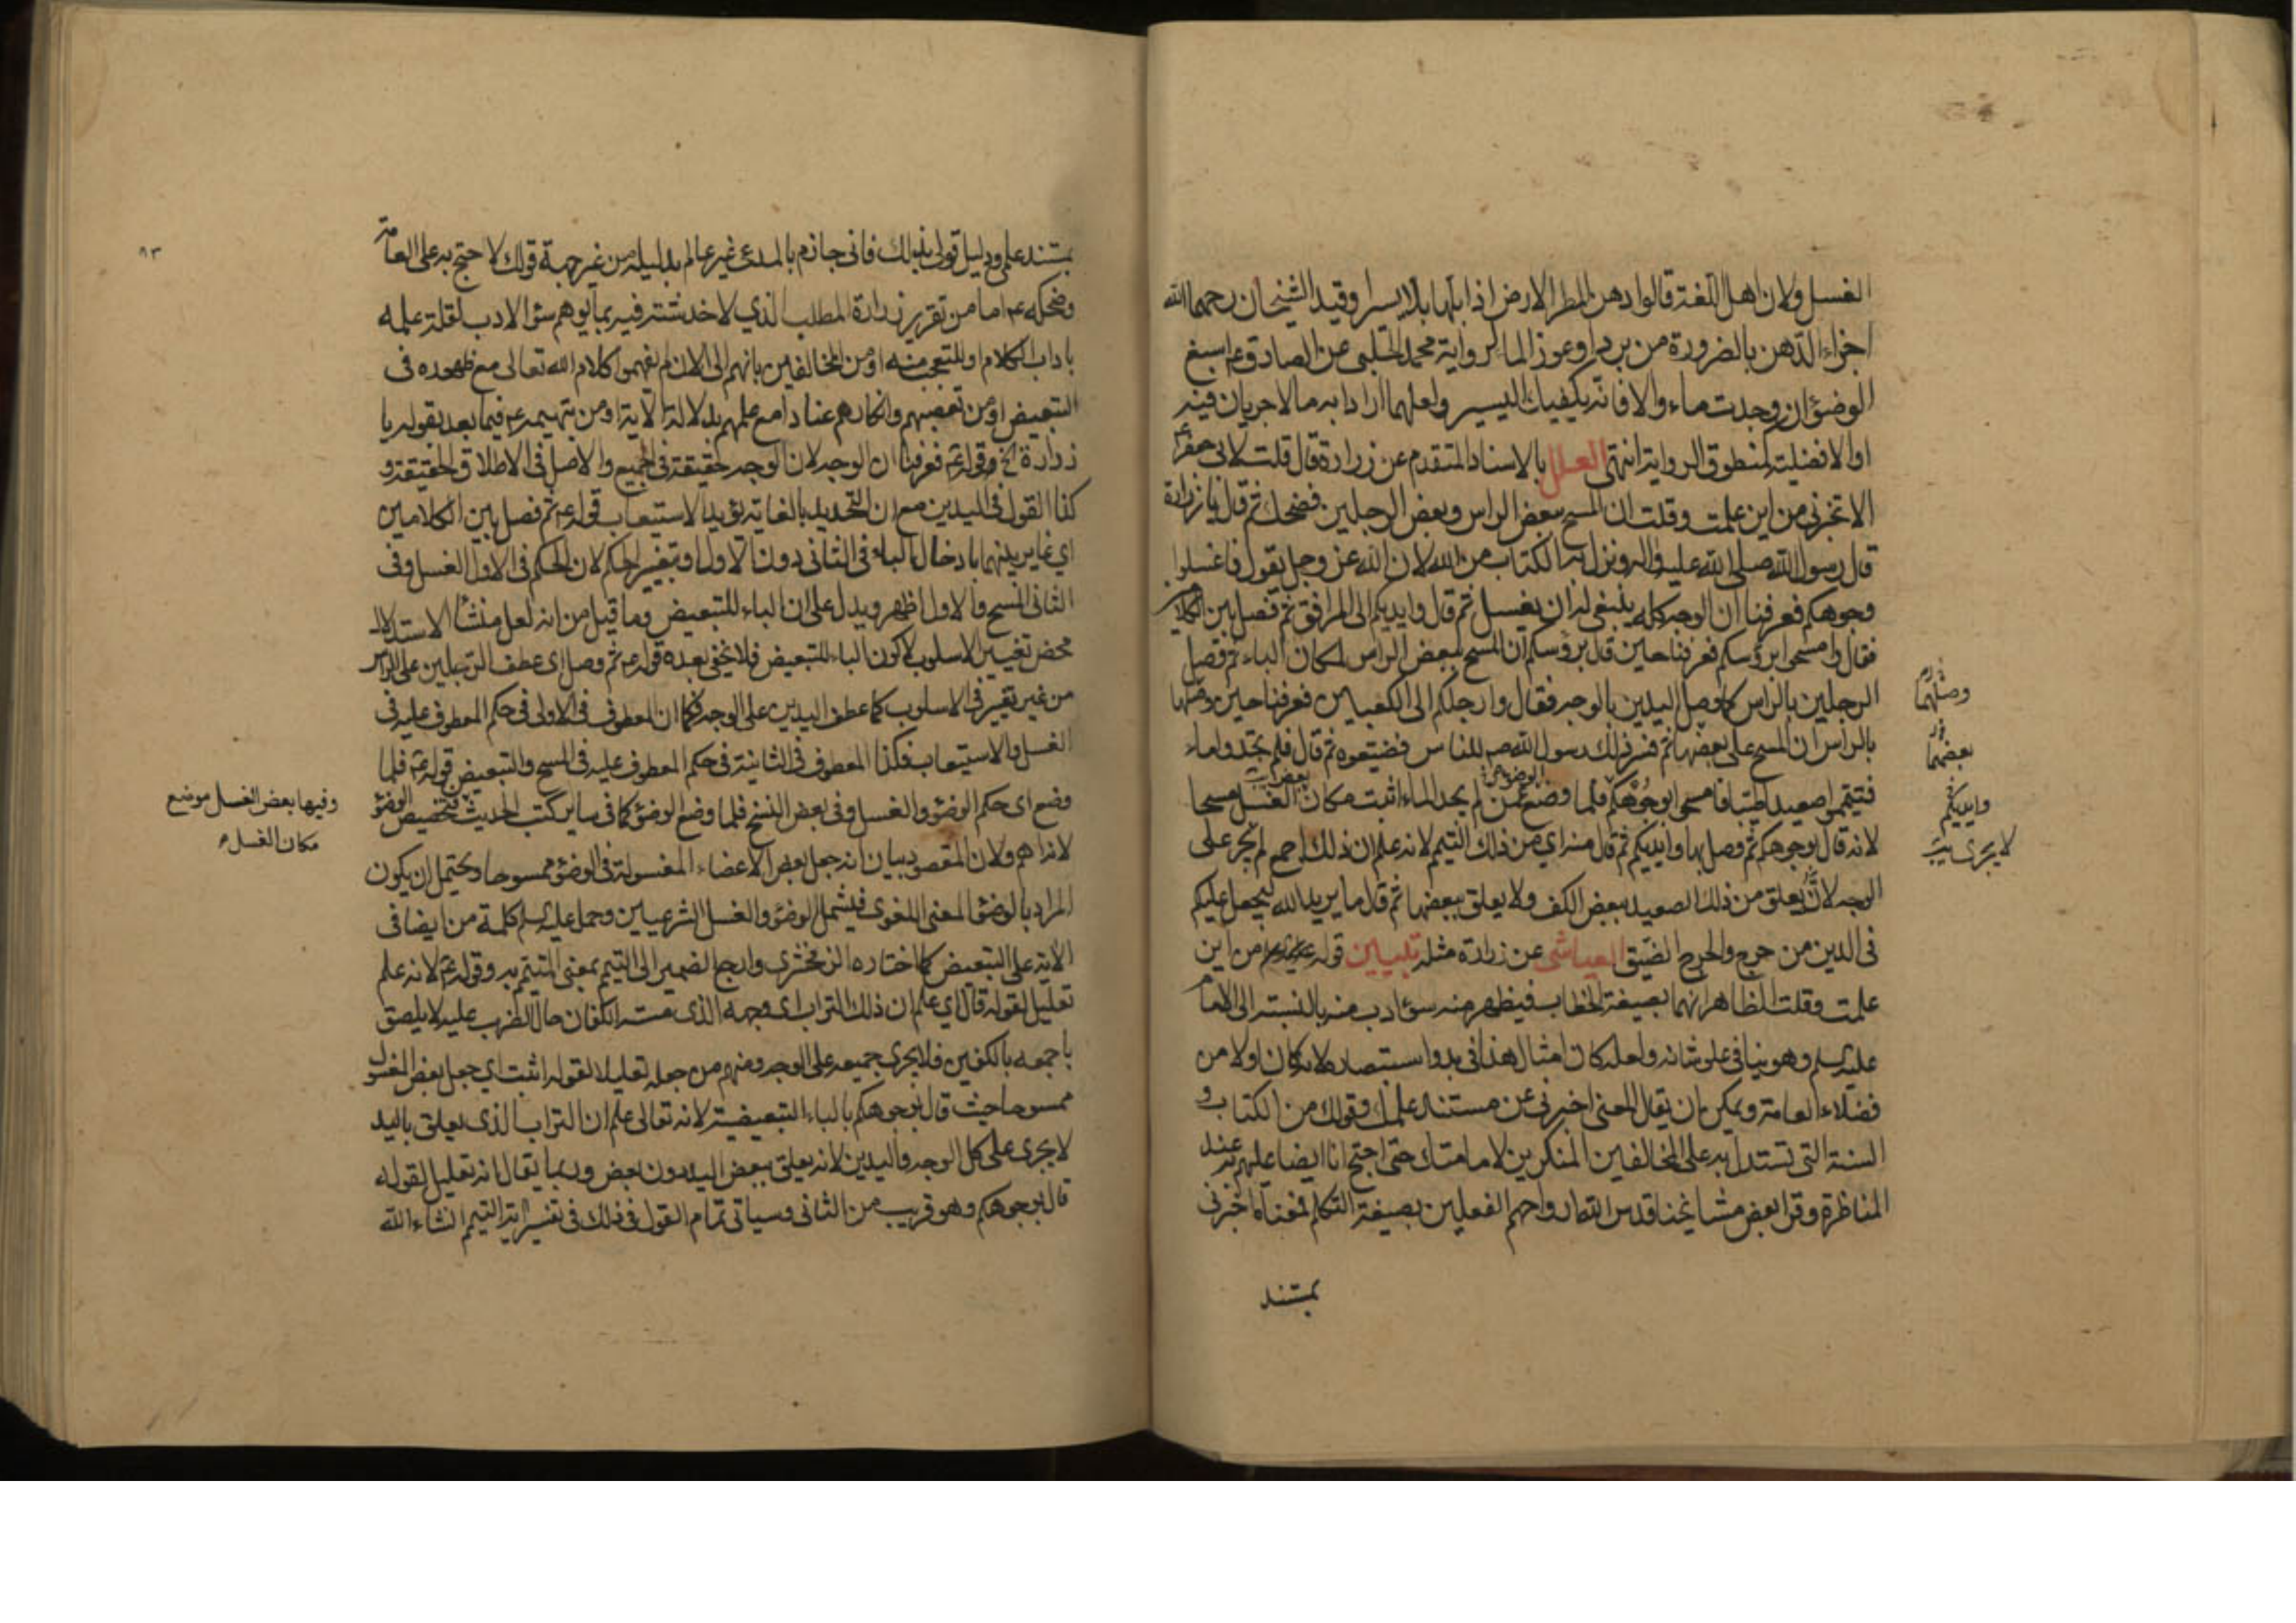 الغسل ولان اهل اللغة قالوا دهن المطر الارض اذا بلها بلا يسيرا وقيد الشيخان رحمهما الله
اجزاء الدهن بالضرورة من برد او عوز الماء لرواية محمد الحلبي عن الصادق ع اسبغ
الوضوء ان وجدت ماء والا فانه يكفيك اليسير ولعلهما ارادا به ما لا جريان فيه
او الافضلية لمنطوق الرواية انتهى العلل بالاسناد المتقدم عن زرارة قال قلت لابي جعفر ع
الا تخبرني من اين علمت وقلت ان المسح ببعض الراس وبعض الرجلين فضحك ثم قال يا زرارة
قال رسول الله صلى الله عليه واله ونزل به الكتاب من الله لان الله عز وجل يقول فاغسلوا
وجوهكم فعرفنا ان الوجه كله ينبغي له ان يغسل ثم قال وايديكم الى المرافق ثم فصل بين الكلامين
فقال وامسحوا برؤسكم فعرفنا حين قال برؤسكم ان المسح ببعض الراس لمكان الباء ثم فصل
الرجلين بالراس كما وصل اليدين بالوجه فقال وارجلكم الى الكعبين فعرفنا حين وصلها
وصلهما
بالراس ان المسح على بعضها ثم فسر ذلك رسول الله ص للناس فضيعوه ثم قال فلم تجدوا ماء
بعضهما
فتيمموا صعيدا طيبا فامسحوا بوجوهكم فلما وضع الوضوء عمن لم يجد الماء اثبت مكان الغسل مسحا
وايديكم
لانه قال بوجوهكم ثم وصل بها وايديكم ثم قال منه اي من ذلك التيمم لانه علم ان ذلك اجمع لم يجر على
لا يجرى
الوجه لانه يعلق من ذلك الصعيد ببعض الكف ولا يعلق ببعضها ثم قال ما يريد الله ليجعل عليكم
في الدين من حرج والحرج الضيق العياشى عن زرارة مثله تبيين قوله من اين
علمت وقلت الظاهر انهما بصيغة الخطاب فيظهر منه سوء ادب منه بالنسبة الى الامام
عليه السلم وهو ينافي علو شانه ولعله كان امثال هذا في بدو استبصاره لانه كان اولا من
فضلاء العامة ويمكن ان يقال المعنى اخبرني عن مستند علمك وقولك من الكتاب و
السنة التي تستدل به على المخالفين المنكرين لامامتك حتى احتج انا ايضا عليهم به عند
المناظرة وقرا بعض مشايخنا قدس الله ارواحهم الفعلين بصيغة التكلم فمعناه اخبرني
بمستند
٩٣
بمستند علمي ودليل قولي بذلك فاني جازم بالمدعى غير عالم بدليله من غير جهة قولك لاحتج به على العامة
وضحكه ع اما من تقرير زرارة المطلب الذي لا خدشة فيه بما يوهم سوء الادب لقلة علمه
باداب الكلام او للتعجب منه او من المخالفين بانهم الى الان لم يفهموا كلام الله تعالى مع ظهوره في
التبعيض او من تعصبهم وانكارهم عنادا مع علمهم بدلالة الاية او من تهييمه ع فيما بعد بقوله يا
زرارة الخ وقوله ع فعرفنا ان الوجه لان الوجه حقيقة في الجميع والاصل في الاطلاق الحقيقة و
كذا القول في اليدين مع ان التحديد بالغاية يؤيد الاستيعاب قوله ع ثم فصل بين الكلامين
اي غاير بينهما بادخال الباء في الثاني دون الاول او بتغيير الحكم لان الحكم في الاول الغسل وفي
الثاني المسح والاول اظهر ويدل على ان الباء للتبعيض وما قيل من انه لعل منشأ الاستدلال
محض تغيير الاسلوب لا كون الباء للتبعيض فلا يخفى بعده قوله ع ثم وصل اي عطف الرجلين على الراس
من غير تغيير في الاسلوب كما عطف اليدين على الوجه فكما ان المعطوف في الاولى في حكم المعطوف عليه في
الغسل والاستيعاب فكذا المعطوف في الثانية في حكم المعطوف عليه في المسح والتبعيض قوله ع فلما
وضع اي حكم الوضوء والغسل وفي بعض النسخ فلما وضع الوضوء كما في ساير كتب الحديث فتخصيص الوضوء
وفيها بعض الغسل موضع
مكان الغسل
لانه اهم ولان المقصود بيان انه جعل بعض الاعضاء المغسولة في الوضوء ممسوحا ويحتمل ان يكون
المراد بالوضوء المعنى اللغوي فيشمل الوضوء والغسل الشرعيين وحمل عليه السلم كلمة من ايضا في
الاية على التبعيض كما اختاره الزمخشري وارجع الضمير الى التيمم بمعنى المتيمم به وقوله ع لانه علم
تعليل لقوله قال اي علم ان ذلك التراب اي وجهه الذي مسته الكفان حال الضرب عليه لا يلصق
باجمعه بالكفين فلا يجري جميعه على الوجه ومنهم من جعله تعليلا لقوله اثبت اي جعل بعض المغسول
ممسوحا حيث قال بوجوهكم بالباء التبعيضية لانه تعالى علم ان التراب الذي يعلق باليد
لا يجرى على كل الوجه واليدين لانه يعلق ببعض اليد دون بعض وربما يقال انه تعليل لقوله
قال بوجوهكم وهو قريب من الثاني وسياتي تمام القول في ذلك في تفسير اية التيمم انشاء الله